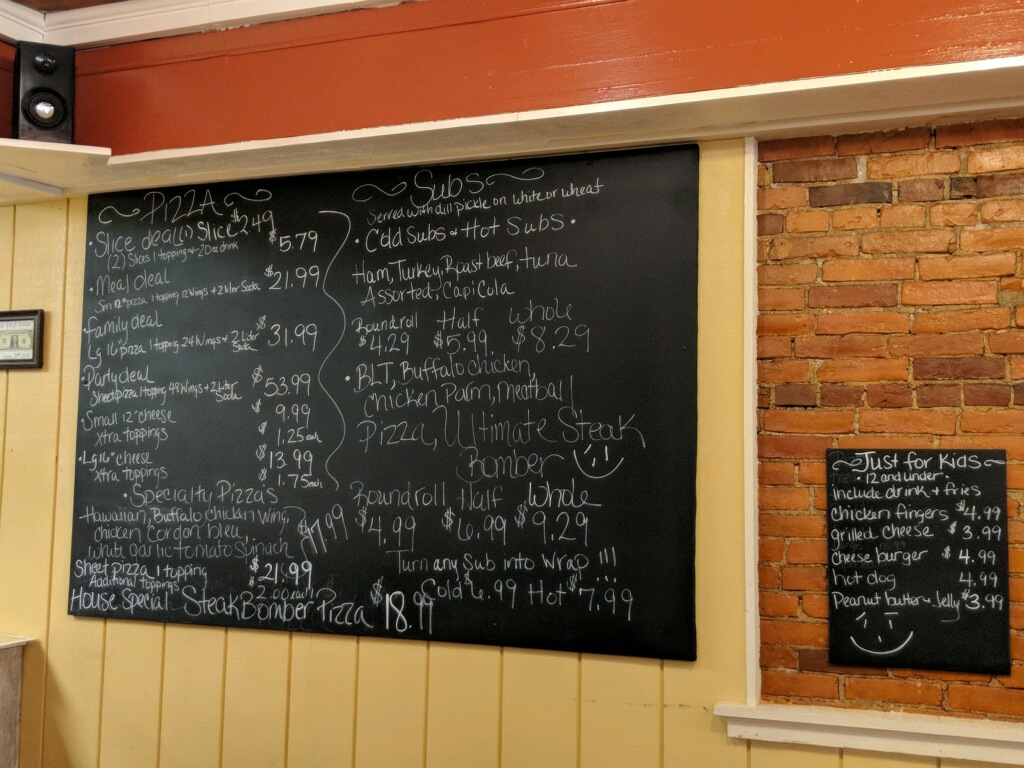 PIZZA
• Slice deal (1) Slice $2.49
(2) Slices 1 topping + 20oz drink $5.79
• Meal deal $21.99
Sm 12" pizza 1 topping 12 Wings + 2 liter Soda
• family deal
Lg 16" pizza 1 topping 24 Wings + 2 Liter Soda $31.99
• Party deal
Sheet pizza 1 topping 48 Wings + 2 Liter Soda $53.99
Small 12" cheese $9.99
xtra toppings $1.25 each
• Lg 16" cheese $13.99
xtra toppings $1.75 each
• Specialty Pizzas
Hawaiian, Buffalo chicken wing,
chicken Cordon bleu, $17.99
white garlic tomato spinach
Sheet pizza 1 topping $21.99
Additional toppings 2.00 each
House Special Steak Bomber Pizza $18.99
Subs
Served with dill pickle on white or wheat
• Cold Subs + Hot Subs •
Ham, Turkey, Roast beef, tuna
Assorted, Capicola
Roundroll Half whole
$4.29 $5.99 $8.29
• BLT, Buffalo chicken,
chicken Parm, meatball
Pizza, Ultimate Steak
Bomber
Roundroll Half whole
$4.99 $6.99 $9.29
Turn any Sub into Wrap !!!
Cold $6.99 Hot $7.99
Just for Kids
• 12 and under •
include drink + fries
chicken fingers $4.99
grilled cheese $3.99
cheese burger $4.99
hot dog 4.99
Peanut butter + Jelly $3.99